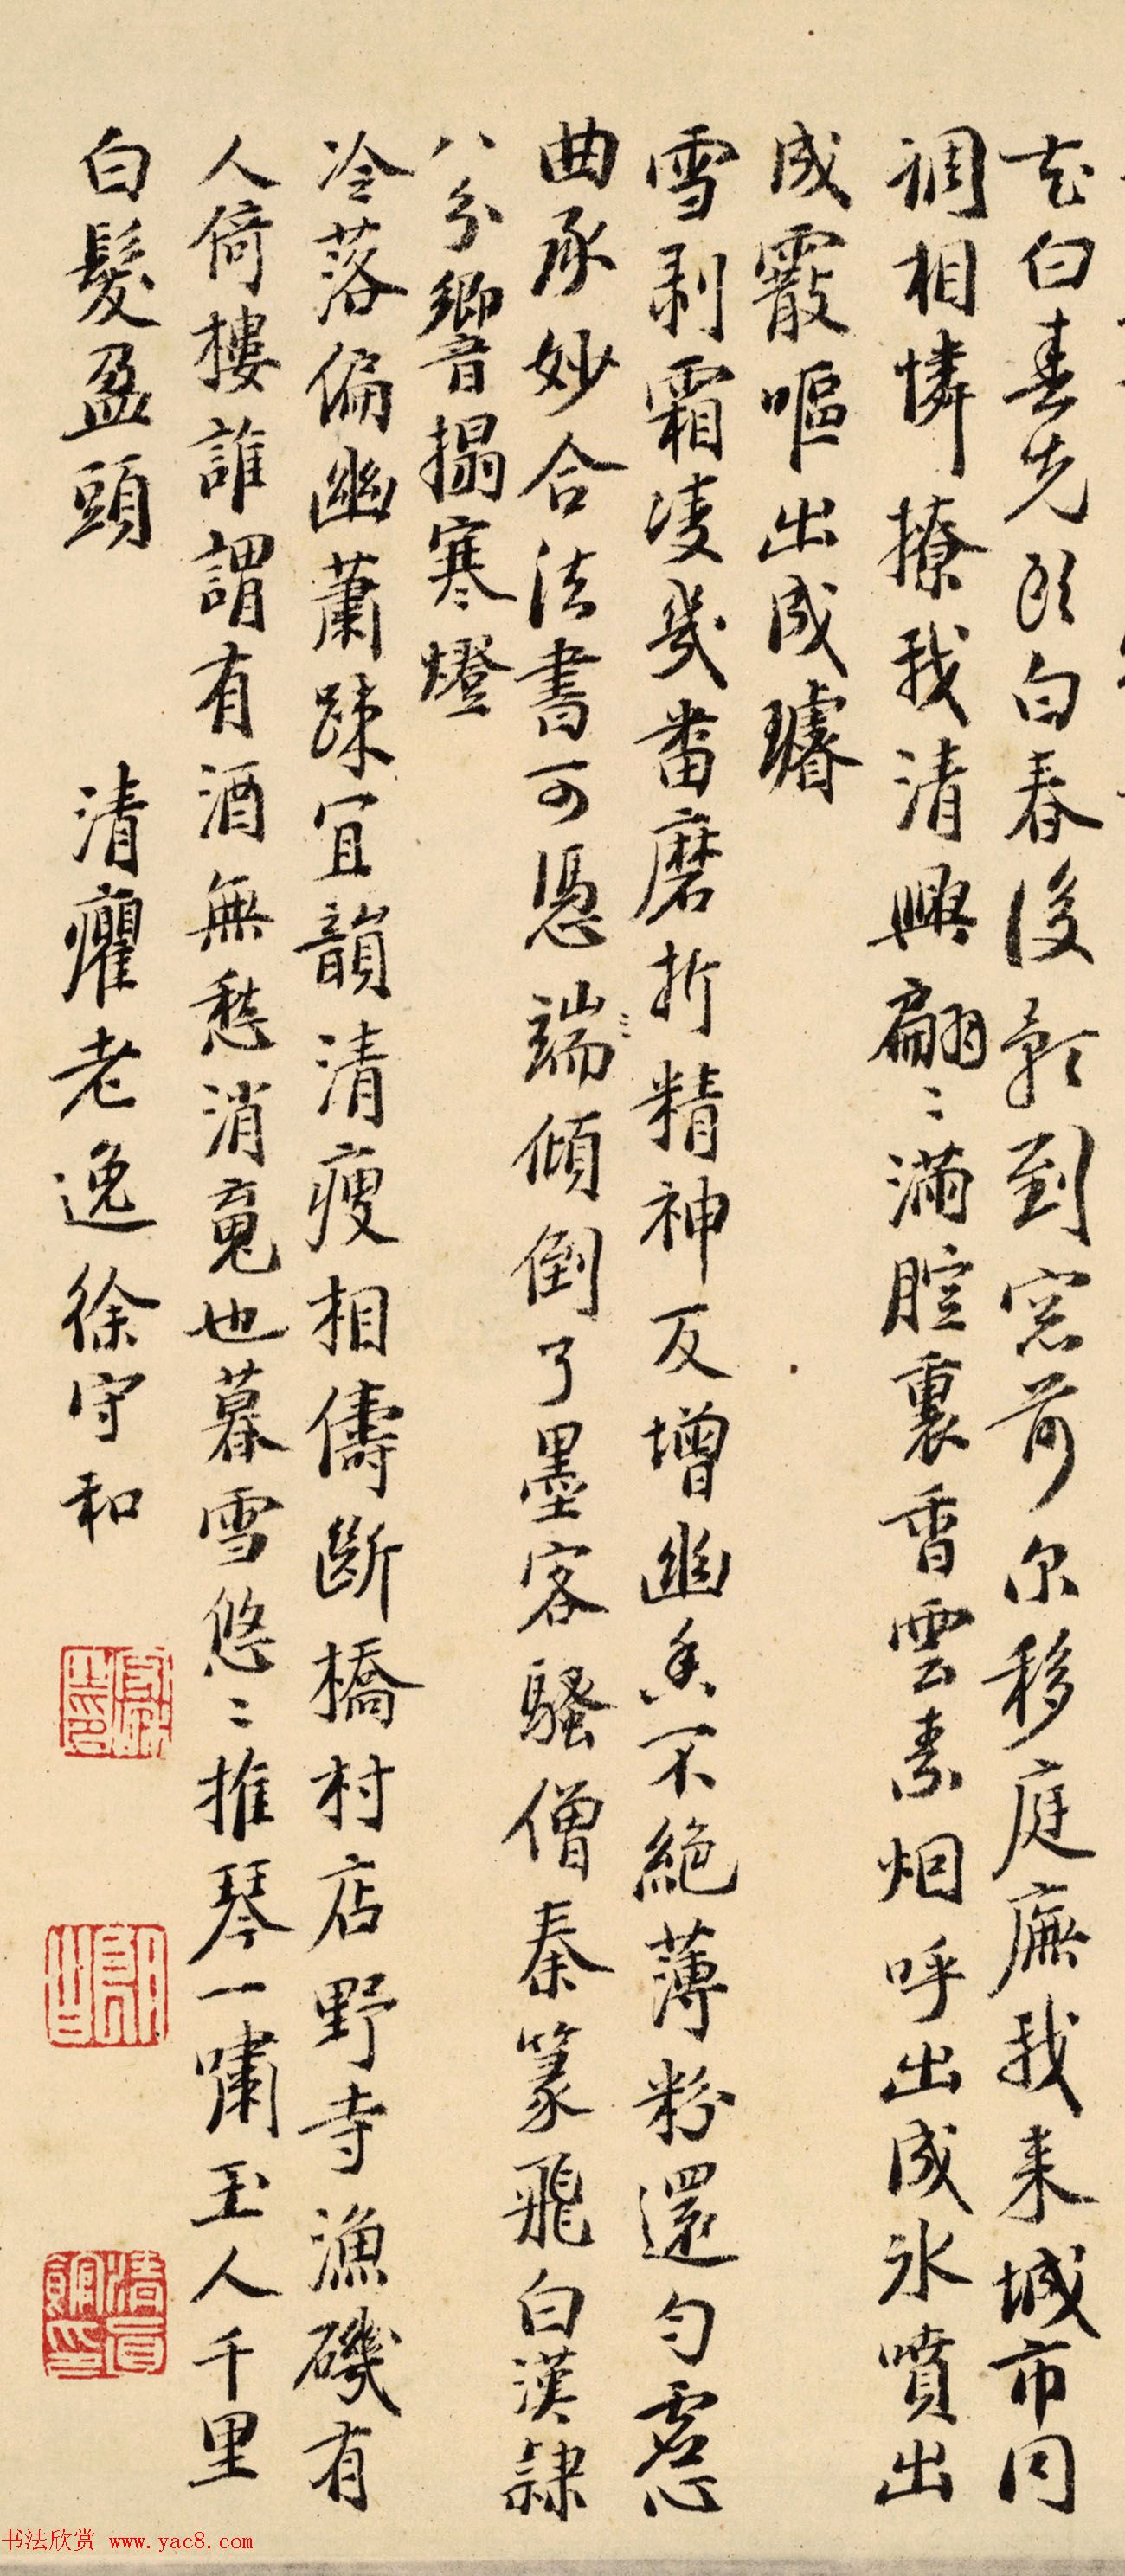 花白春先放白春後影到窓前尔移庭廡我来城市同
調相憐撩我清興翩〻滿腔裏香雲素烟呼出成氷噴出
成霰嘔出成璿
雪剥霜凌幾畨磨折精神反增幽香不絶薄粉還勻虚心
曲承妙合法書可憑端〻傾倒了墨客騷僧秦篆飛白漢隷
八分響搨寒燈
冷落偏幽蕭踈冝韻清瘦相儔斷橋村店野寺漁磯有
人倚樓誰謂有酒無愁消䰟也暮雪悠〻推琴一嘯玉人千里
白髮盈頭
清癯老逸徐守和
书法欣赏 www.yac8.com